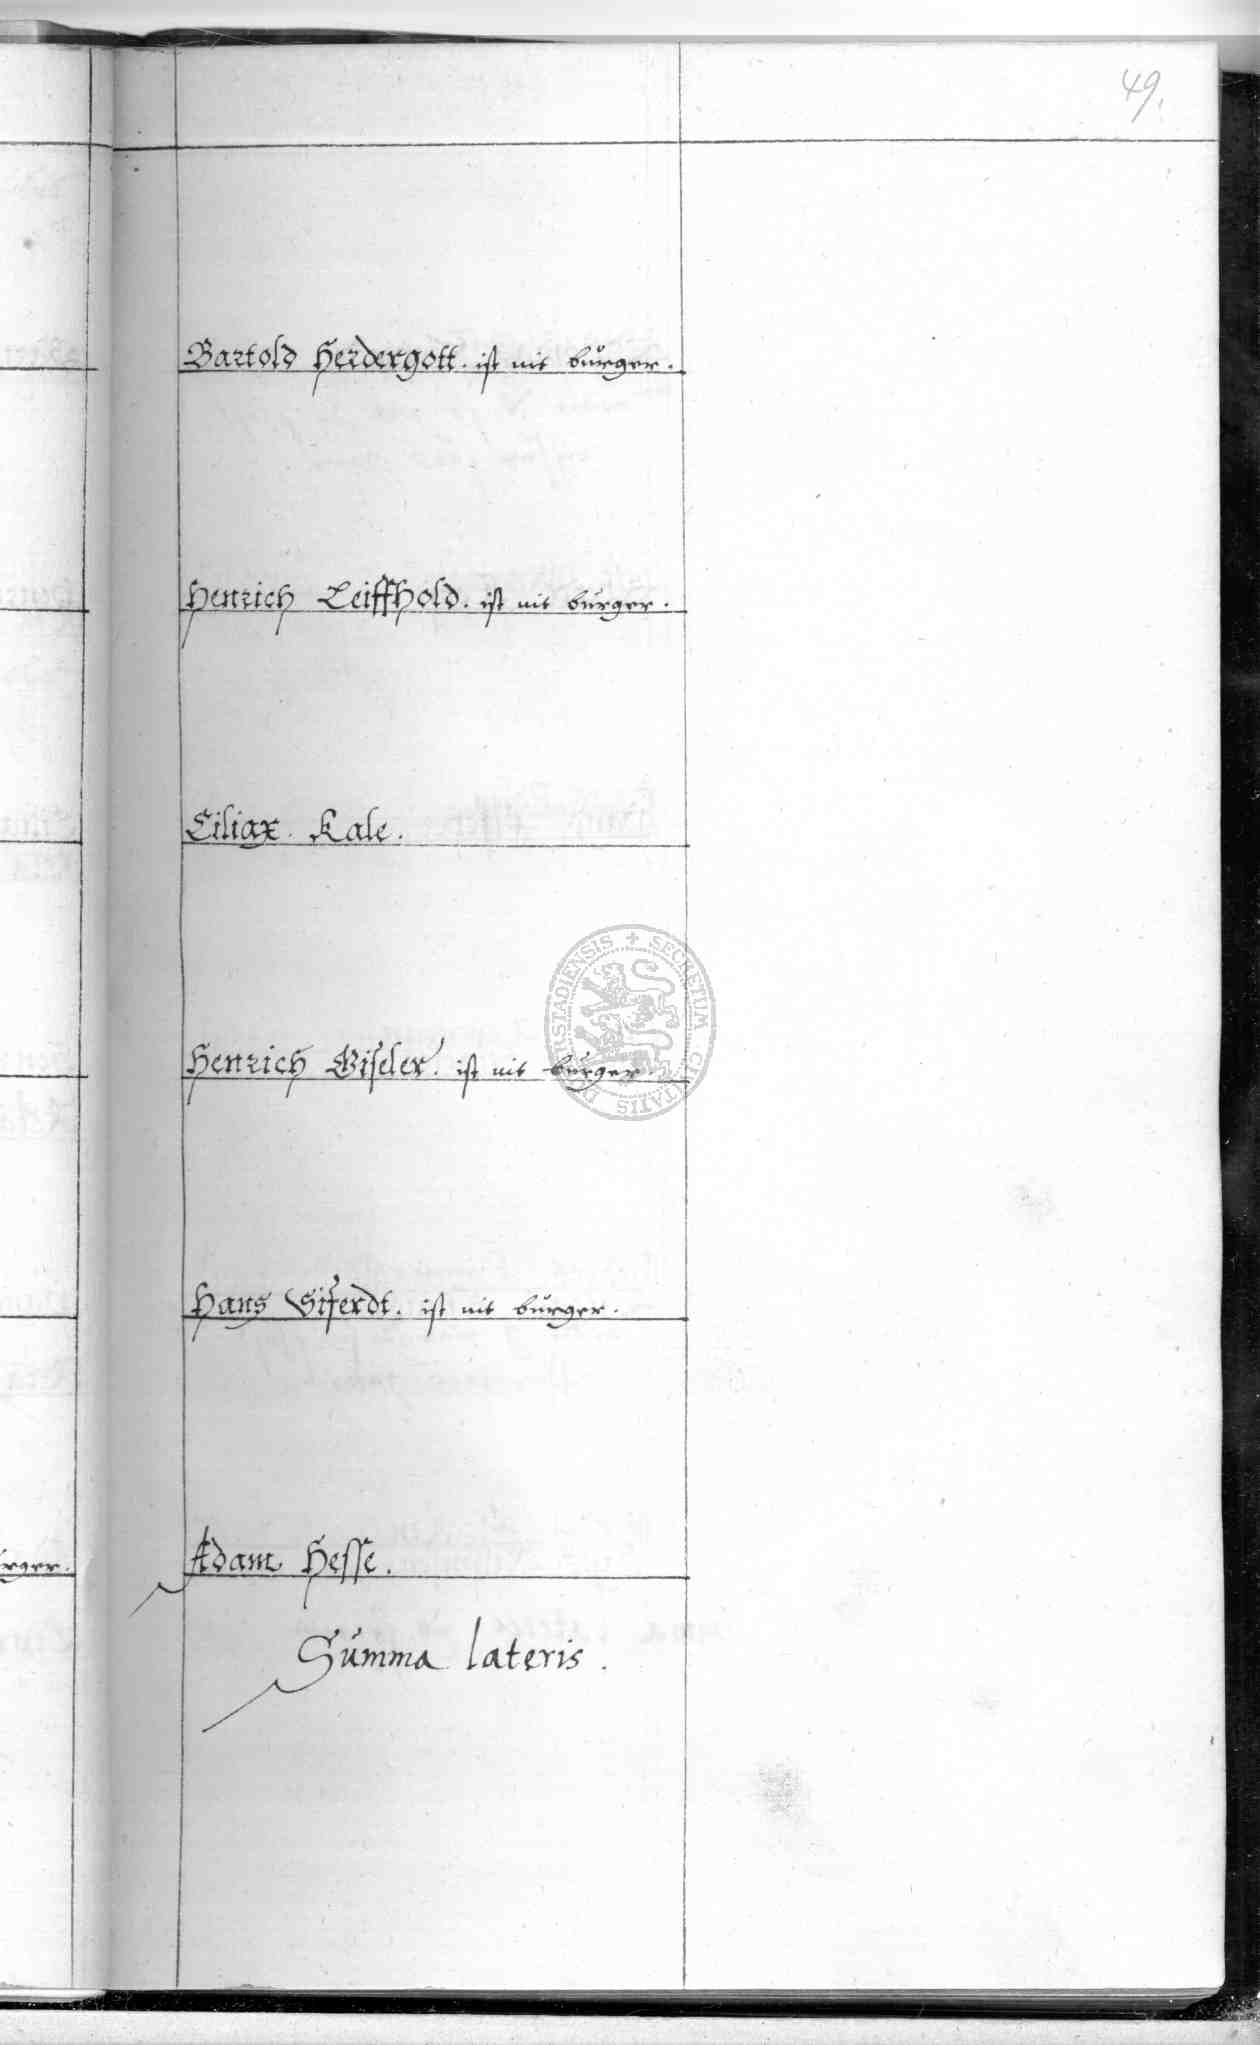 49.
Bartold Herdergott. ist nit bürger.
Henrich Leiffhold. ist nit bürger.
Ciliax. Kale.
Henrich Giseler. ist nit bürger.
Hans Siferdt. ist nit bürger.
Adam Hesse.
Summa lateris.
SECRETUM CIVITATIS DVDERSTADIENSIS